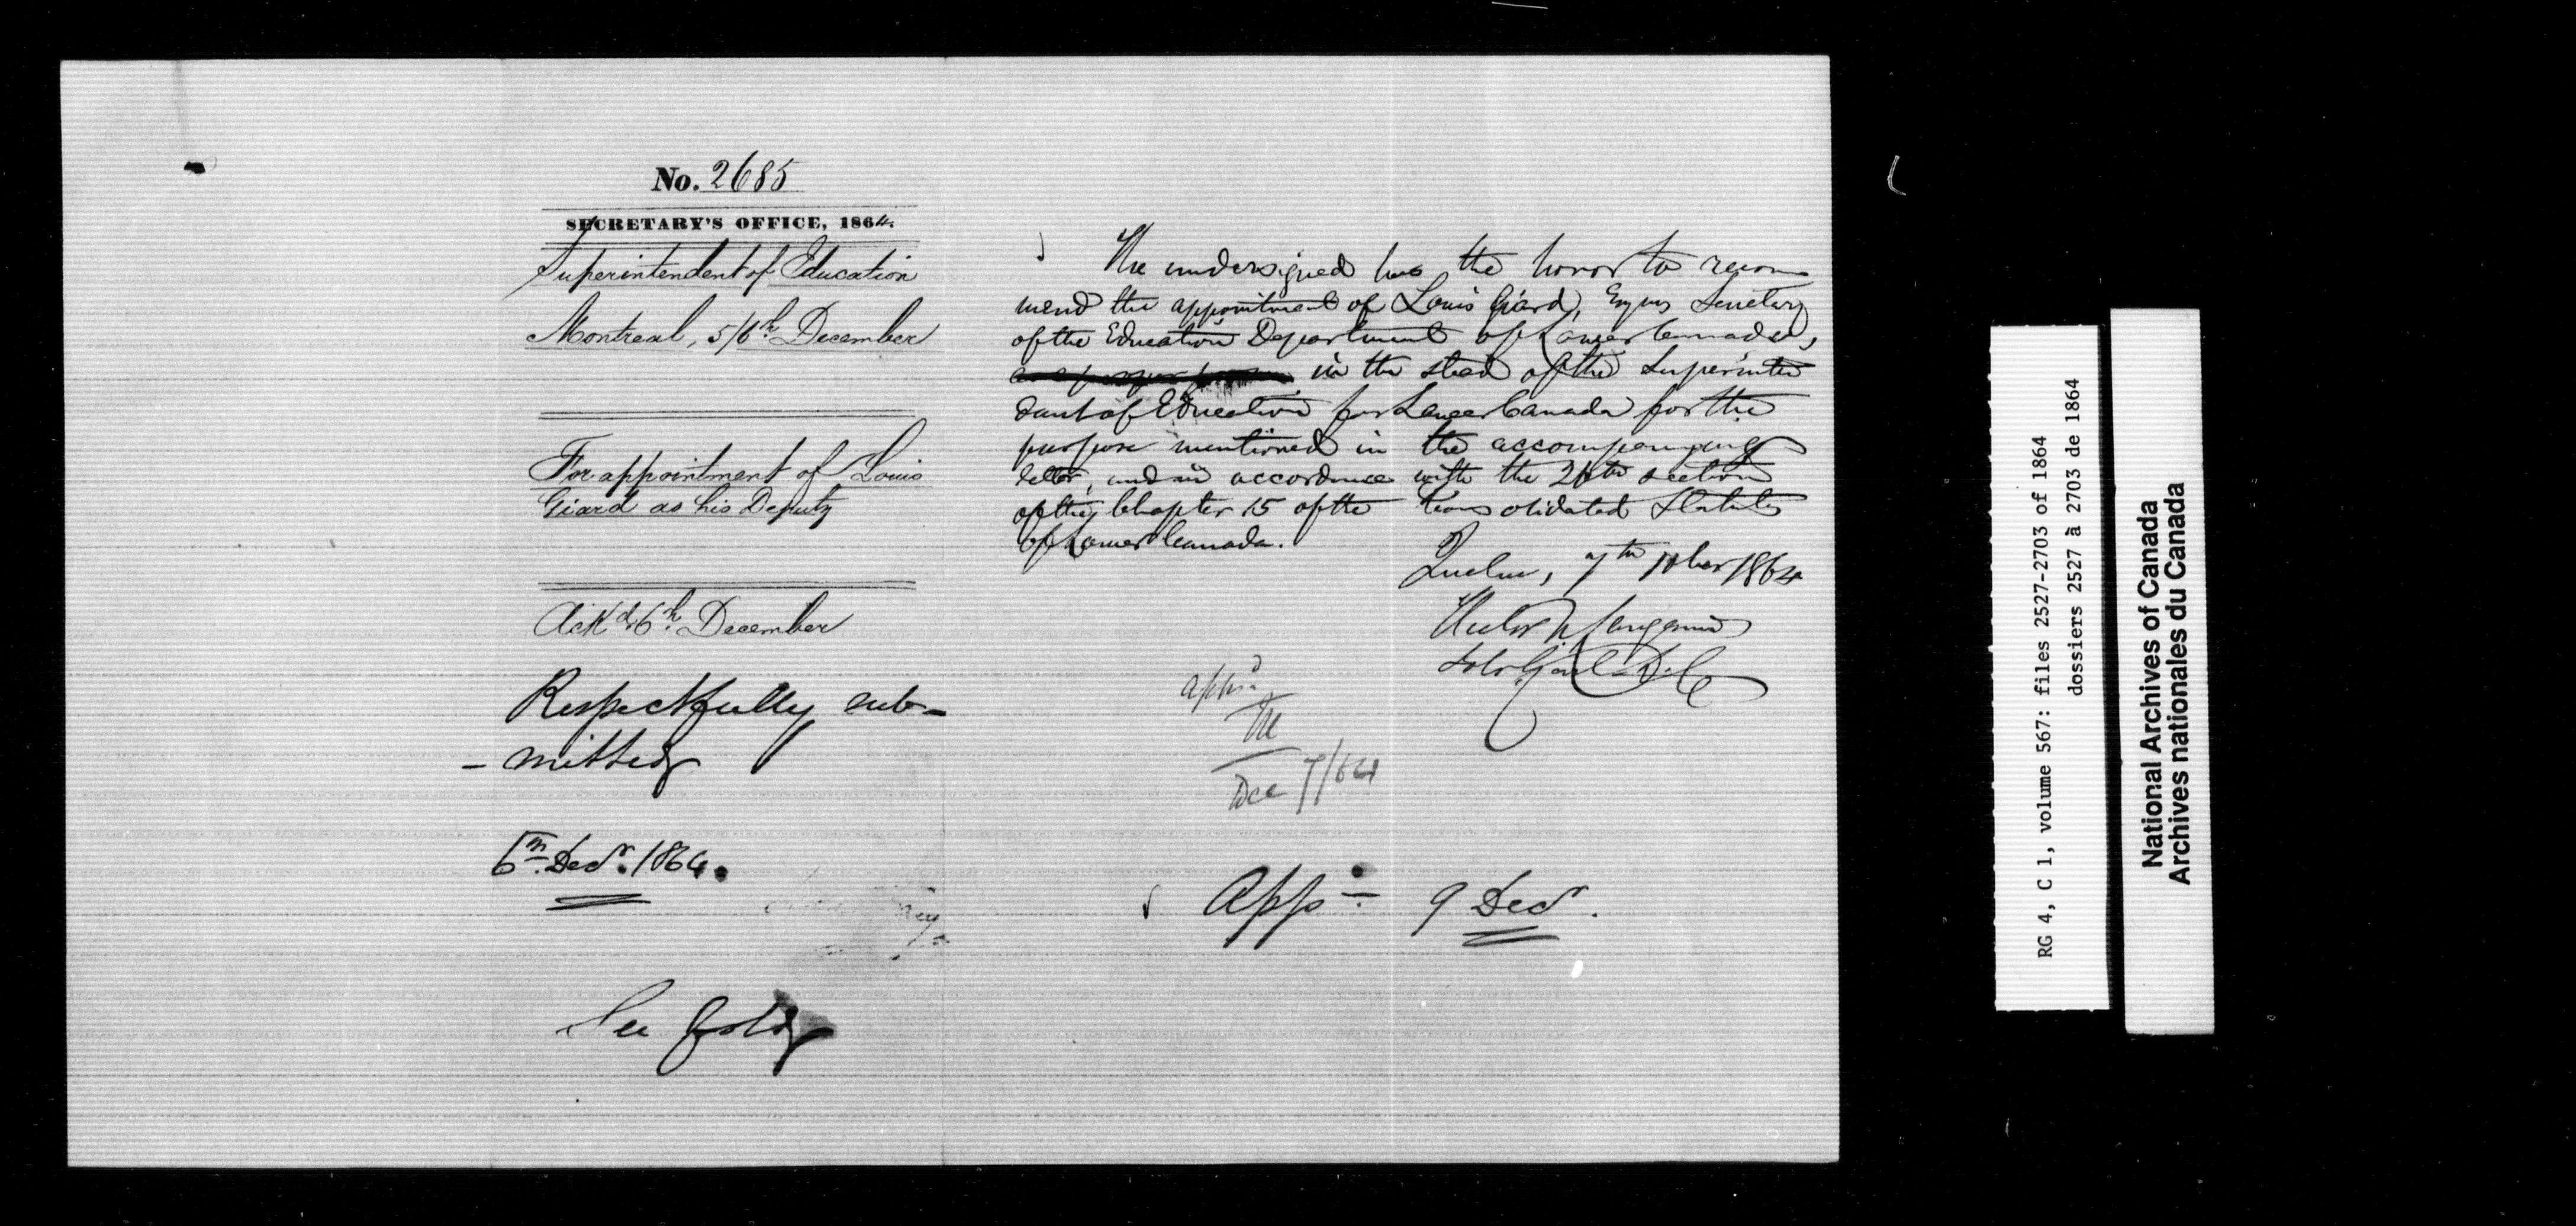 No. 2685
SECRETARY'S OFFICE, 1864.
Superintendent of Education
Montreal, 5/6th December
For appointment of Louis
Giard as his Deputy
Ackd. 6th December
Respectfully sub-
- mitted
6th Decr. 1864.
See fold
The undersigned has the honor to recom
mend the appointment of Louis Giard, Secretary
of the Education Department of Lower Cannada,
in the stead of the Superinten
dant of Education for Lower Canada for the
purpose mentioned in the accompanying
letter, and in accordance with the section
of the Chapter 15 of the Consolidated Statutes
of Lower Canada.
Quebec, 7th Xber 1864
Hector L. Langevin
Solr. Genl. L. C.
appd.
M
Dec 7/64
Appd. 9 Decr.
RG 4, C 1, volume 567: files 2527-2703 of 1864
dossiers 2527 à 2703 de 1864
National Archives of Canada
Archives nationales du Canada